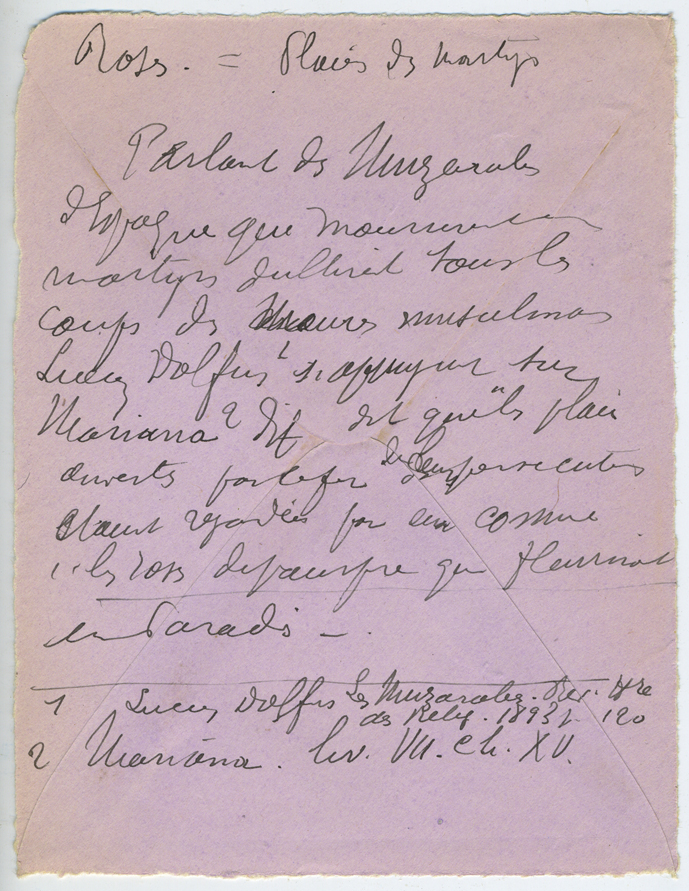 Roses. = Plaies des martyrs
Parlant des Muzarabes
d'Espagne que moururent
martyrs sous les
coups des Maures musulmans
Lucien Dolfus 1 s'appuyant sur
Mariana 2 dit qu'ils plaies
ouverts par le fer de leurs persecuteurs
étaient regardées par eux comme
"les roses de pourpre qui fleurirent
en Paradis -
1 Lucien Dolfus Les Muzarabes. Rev. Hre
des Relig. 1893 p. 120
2 Mariana. liv. VII. Ch. XV.